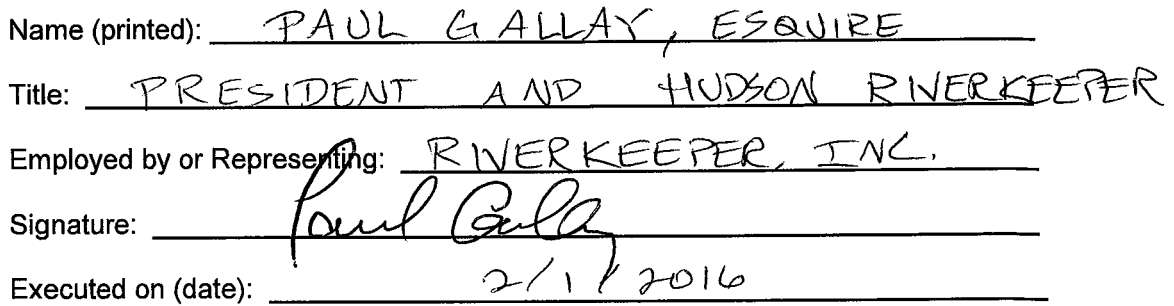 Name (printed): PAUL GALLAY, ESQUIRE
Title: PRESIDENT AND HUDSON RIVERKEEPER
Employed by or Representing: RIVERKEEPER, INC.
Signature: Paul Gallay
Executed on (date): 2/1/2016